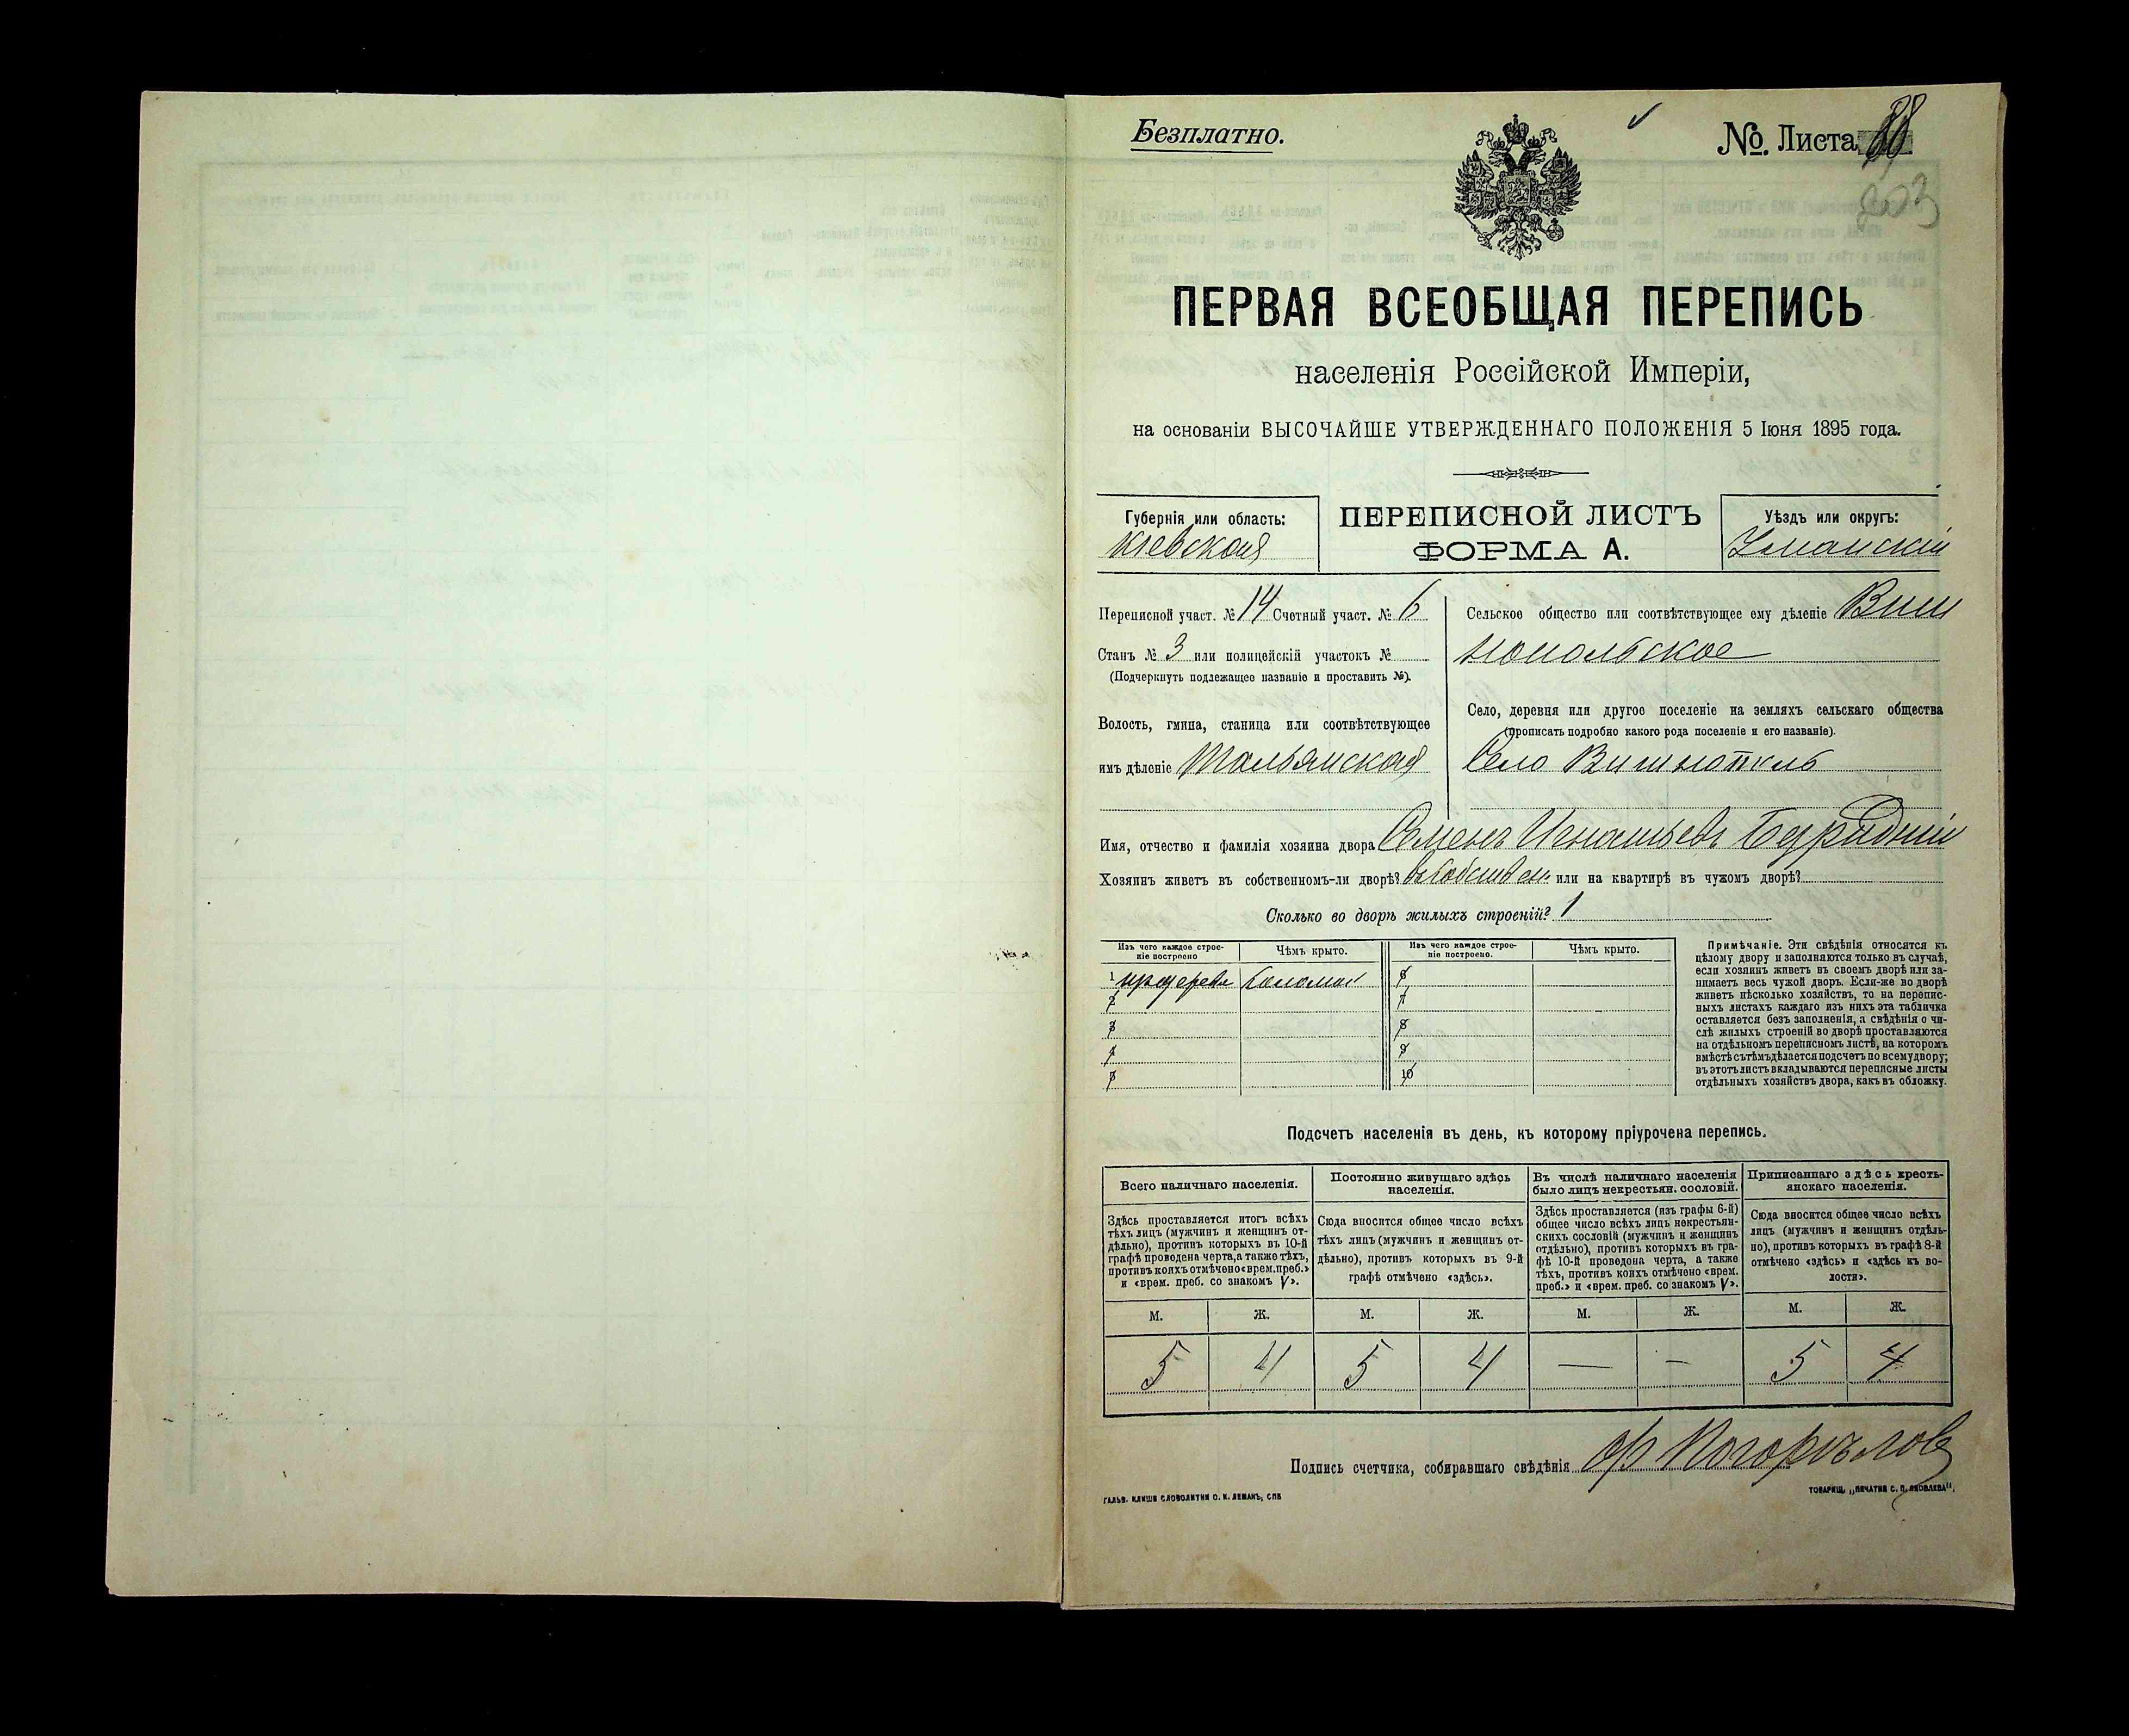 Безплатно.
№ Листа 88
203
ПЕРВАЯ ВСЕОБЩАЯ ПЕРЕПИСЬ
населенія Россійской Имперіи,
на основаніи ВЫСОЧАЙШЕ УТВЕРЖДЕННАГО ПОЛОЖЕНІЯ 5 Іюня 1895 года.
Губернія или область:
Кіевская
ПЕРЕПИСНОЙ ЛИСТЪ
ФОРМА А.
Уѣздъ или округъ:
Уманскій
Переписной участ. № 14 Счетный участ. № 6
Станъ № 3 или полицейскій участокъ №
(Подчеркнуть подлежащее названіе и проставить №).
Волость, гмина, станица или соотвѣтствующее
имъ дѣленіе Тальянская
Сельское общество или соотвѣтствующее ему дѣленіе Виш
нопольское
Село, деревня или другое поселеніе на земляхъ сельскаго общества
(прописать подробно какого рода поселеніе и его названіе).
Село Вишнополь
Имя, отчество и фамилія хозяина двора Семенъ Игнатьевъ
Хозяинъ живетъ въ собственномъ-ли дворѣ? въ собствен. или на квартирѣ въ чужомъ дворѣ?
Сколько во дворѣ жилыхъ строеній? 1
Изъ чего каждое строе-
ніе построено
Чѣмъ крыто.
Изъ чего каждое строе-
ніе построено.
Чѣмъ крыто.
1 соломой 6
2 7
3 8
4 9
5 10
Примѣчаніе. Эти свѣдѣнія относятся къ
цѣлому двору и заполняются только въ случаѣ,
если хозяинъ живетъ въ своемъ дворѣ или за-
нимаетъ весь чужой дворъ. Если-же во дворѣ
живетъ нѣсколько хозяйствъ, то на перепис-
ныхъ листахъ каждаго изъ нихъ эта табличка
оставляется безъ заполненія, а свѣдѣнія о чи-
слѣ жилыхъ строеній во дворѣ проставляются
на отдѣльномъ переписномъ листѣ, на которомъ
вмѣстѣ съ тѣмъ дѣлается подсчетъ по всему двору;
въ этотъ листъ вкладываются переписные листы
отдѣльныхъ хозяйствъ двора, какъ въ обложку.
Подсчетъ населенія въ день, къ которому пріурочена перепись.
Всего наличнаго населенія.
Здѣсь проставляется итогъ всѣхъ
тѣхъ лицъ (мужчинъ и женщинъ от-
дѣльно), противъ которыхъ въ 10-й
графѣ проведена черта, а также тѣхъ,
противъ коихъ отмѣчено «врем. преб.»
и «врем. преб. со знакомъ V».
Постоянно живущаго здѣсь
населенія.
Сюда вносится общее число всѣхъ
тѣхъ лицъ (мужчинъ и женщинъ от-
дѣльно), противъ которыхъ въ 9-й
графѣ отмѣчено «здѣсь».
Въ числѣ наличнаго населенія
было лицъ некрестьян. сословій.
Здѣсь проставляется (изъ графы 6-й)
общее число всѣхъ лицъ некрестьян-
скихъ сословій (мужчинъ и женщинъ
отдѣльно), противъ которыхъ въ гра-
фѣ 10-й проведена черта, а также
тѣхъ, противъ коихъ отмѣчено «врем.
преб.» и «врем. преб. со знакомъ V».
Приписаннаго здѣсь кресть-
янскаго населенія.
Сюда вносится общее число всѣхъ
лицъ (мужчинъ и женщинъ отдѣль-
но), противъ которыхъ въ графѣ 8-й
отмѣчено «здѣсь» и «здѣсь къ во-
лости».
М. Ж. М. Ж. М. Ж. М. Ж.
5 4 5 4 — - 5 4
Подпись счетчика, собиравшаго свѣдѣнія Погорѣлов
ГАЛЬВ. КЛИШЕ СЛОВОЛИТНИ О. И. ЛЕМАНЪ, СПБ
ТОВАРИЩ. „ПЕЧАТНЯ С. П. ЯКОВЛЕВА".